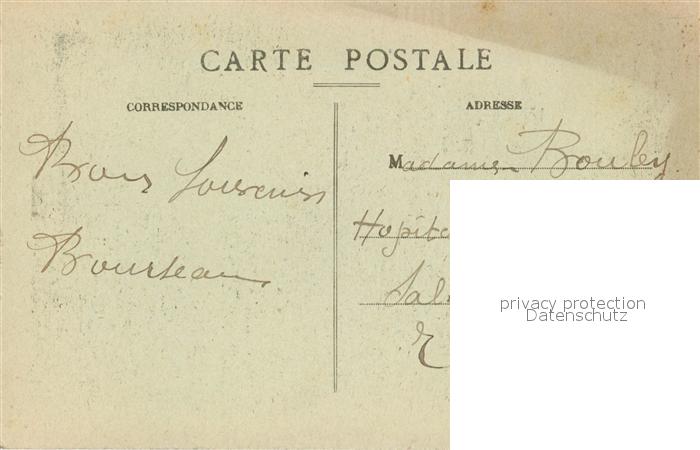 CARTE POSTALE
CORRESPONDANCE
ADRESSE
Bons Souvenirs
Bourseau
Madame Bouley
Hopita
Sal
privacy protection
Datenschutz